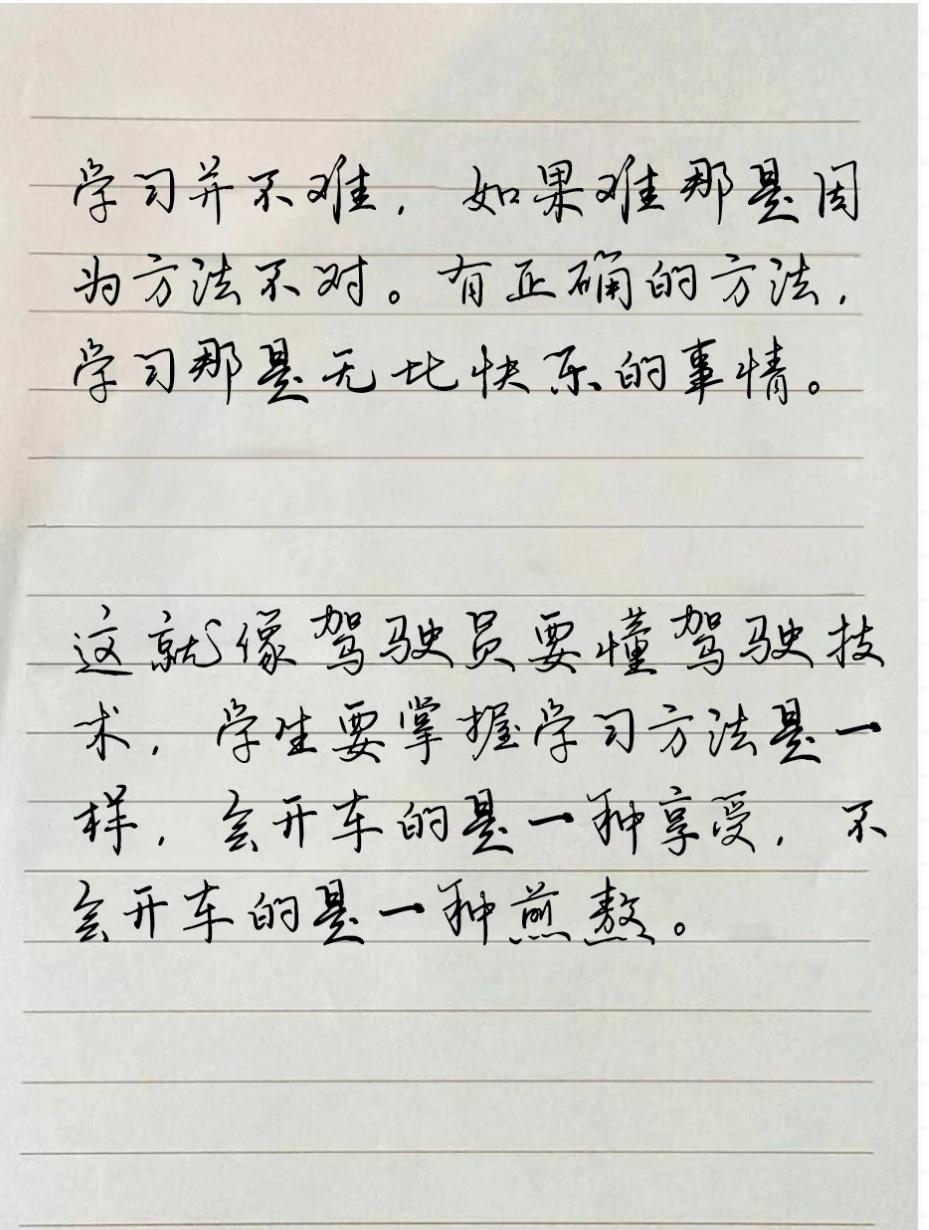 学习并不难，如果难那是因
为方法不对。有正确的方法，
学习那是无比快乐的事情。
这就像驾驶员要懂驾驶技
术，学生要掌握学习方法是一
样，会开车的是一种享受，不
会开车的是一种煎熬。